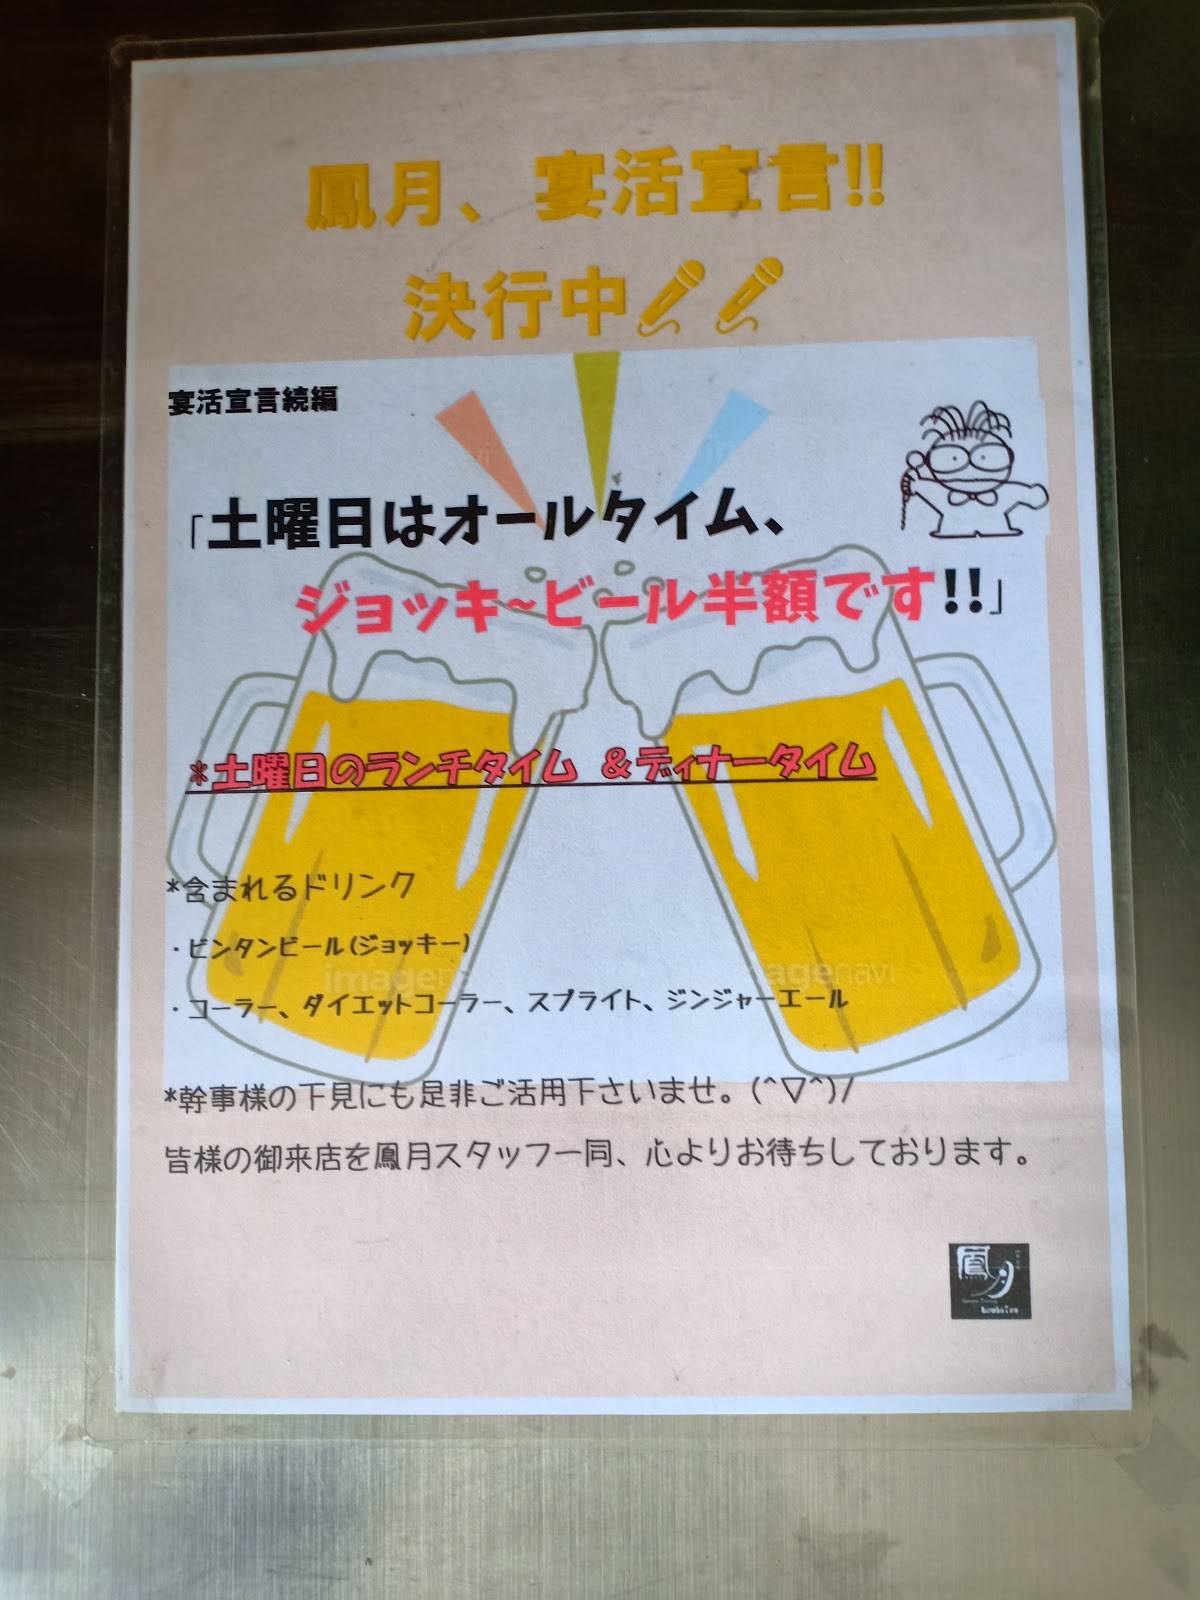 鳳月、宴活宣言!!
決行中
宴活宣言続編
「土曜日はオールタイム、
ジョッキ~ビール半額です!!」
*土曜日のランチタイム &ディナータイム
*含まれるドリンク
・ビンタンビール(ジョッキー)
・コーラー、ダイエットコーラー、スプライト、ジンジャーエール
*幹事様の下見にも是非ご活用下さいませ。(^▽^)/
皆様の御来店を鳳月スタッフ一同、心よりお待ちしております。
鳳月